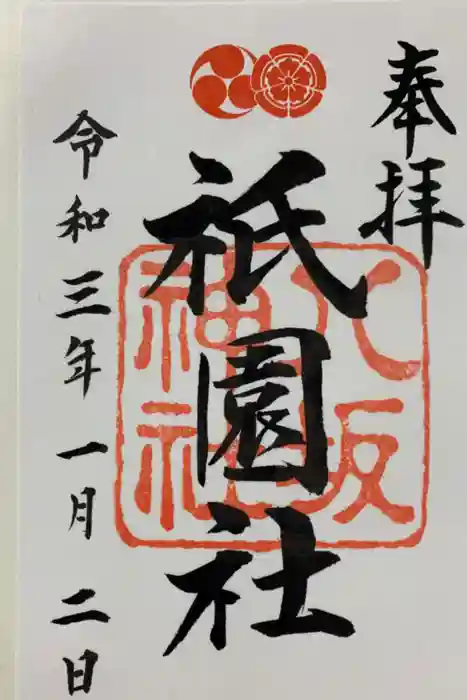 奉拝
八坂
神社
祇園社
令和三年一月二日